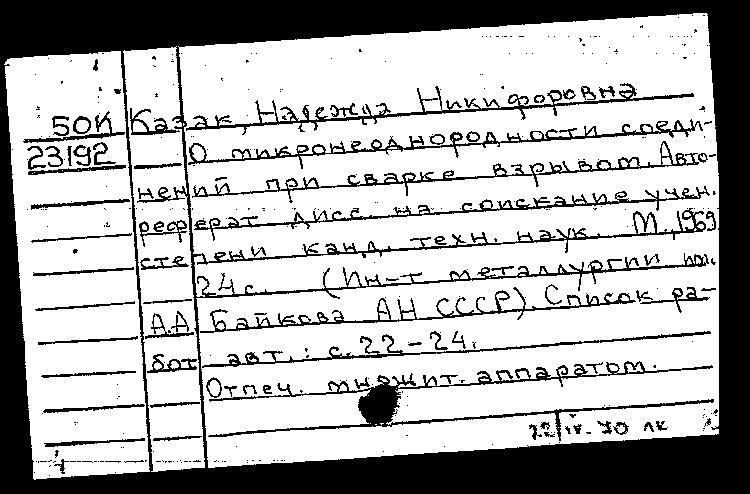 50К Казак, Надежда Никифоровна
23192 О микронеоднородности соеди-
нений при сварке взрывом. Авто-
реферат дисс. на соискание учен.
степени канд. техн. наук. М., 1969
24с. (Ин-т металлургии им.
А.А. Байкова АН СССР). Список ра-
бот авт.: с. 22-24.
Отпеч. множит. аппаратом.
22/IV-70 лк